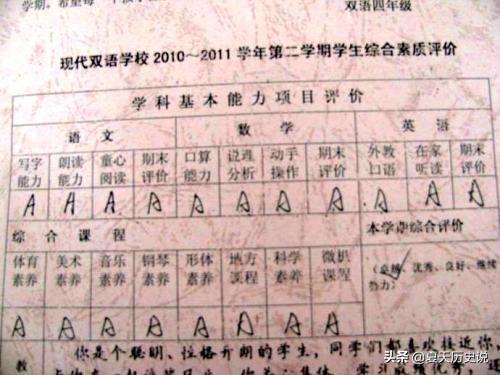 学期。希望每一个孩子
双语四年级
现代双语学校2010～2011学年第二学期学生综合素质评价
学科基本能力项目评价
语文 数学 英语
写字能力 朗读能力 童心阅读 期末评价 口算能力 说理分析 动手操作 期末评价 外教口语 在家听读 期末评价
A A A A A A A A A A A
综合课程 本学期综合评价
体育素养 美术素养 音乐素养 钢琴素养 形体素养 地方课程 科学素养 微机课程 (卓越、优秀、良好、继续努力)
A A A A A A A A
教 你是个聪明、性格开朗的学生，同学们都喜欢接近你。
学习成绩优秀，
头条 @夏天历史说